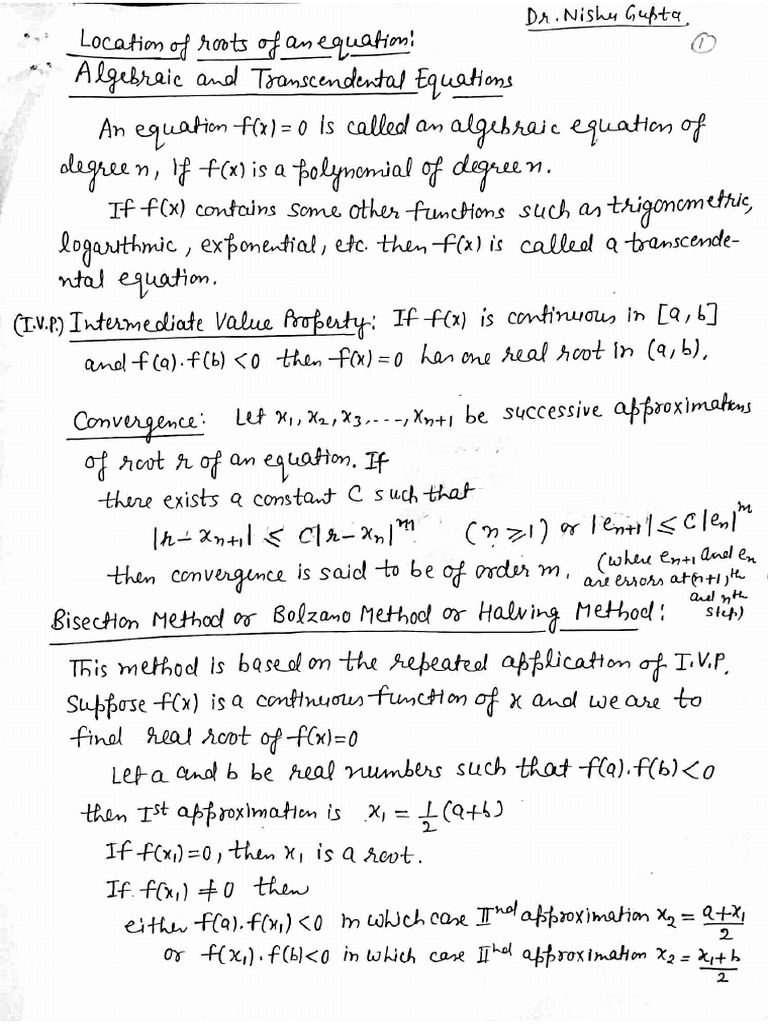 Dr. Nishu Gupta,
①
Location of roots of an equation:
Algebraic and Transcendental Equations
An equation f(x) = 0 is called an algebraic equation of
degree n, If f(x) is a polynomial of degree n.
If f(x) contains some other functions such as trigonometric,
logarithmic, exponential, etc. then f(x) is called a transcende-
ntal equation.
(I.V.P.) Intermediate Value Property: If f(x) is continuous in [a, b]
and f(a). f(b) < 0 then f(x) = 0 has one real root in (a, b).
Convergence: Let x₁, x₂, x₃, ----, xₙ₊₁ be successive approximations
of root r of an equation. If
there exists a constant C such that
|r - xₙ₊₁| ≤ C|r - xₙ|ᵐ (n ≥ 1) or |eₙ₊₁| ≤ C|eₙ|ᵐ
then convergence is said to be of order m. (where eₙ₊₁ and eₙ
are errors at (n+1)th
and nth
step.)
Bisection Method or Bolzano Method or Halving Method:
This method is based on the repeated application of I.V.P.
Suppose f(x) is a continuous function of x and we are to
find real root of f(x) = 0
Let a and b be real numbers such that f(a). f(b) < 0
then Ist approximation is x₁ = 1/2 (a+b)
If f(x₁) = 0, then x₁ is a root.
If f(x₁) ≠ 0 then
either f(a). f(x₁) < 0 in which case IInd approximation x₂ = (a+x₁)/2
or f(x₁). f(b) < 0 in which case IInd approximation x₂ = (x₁+b)/2